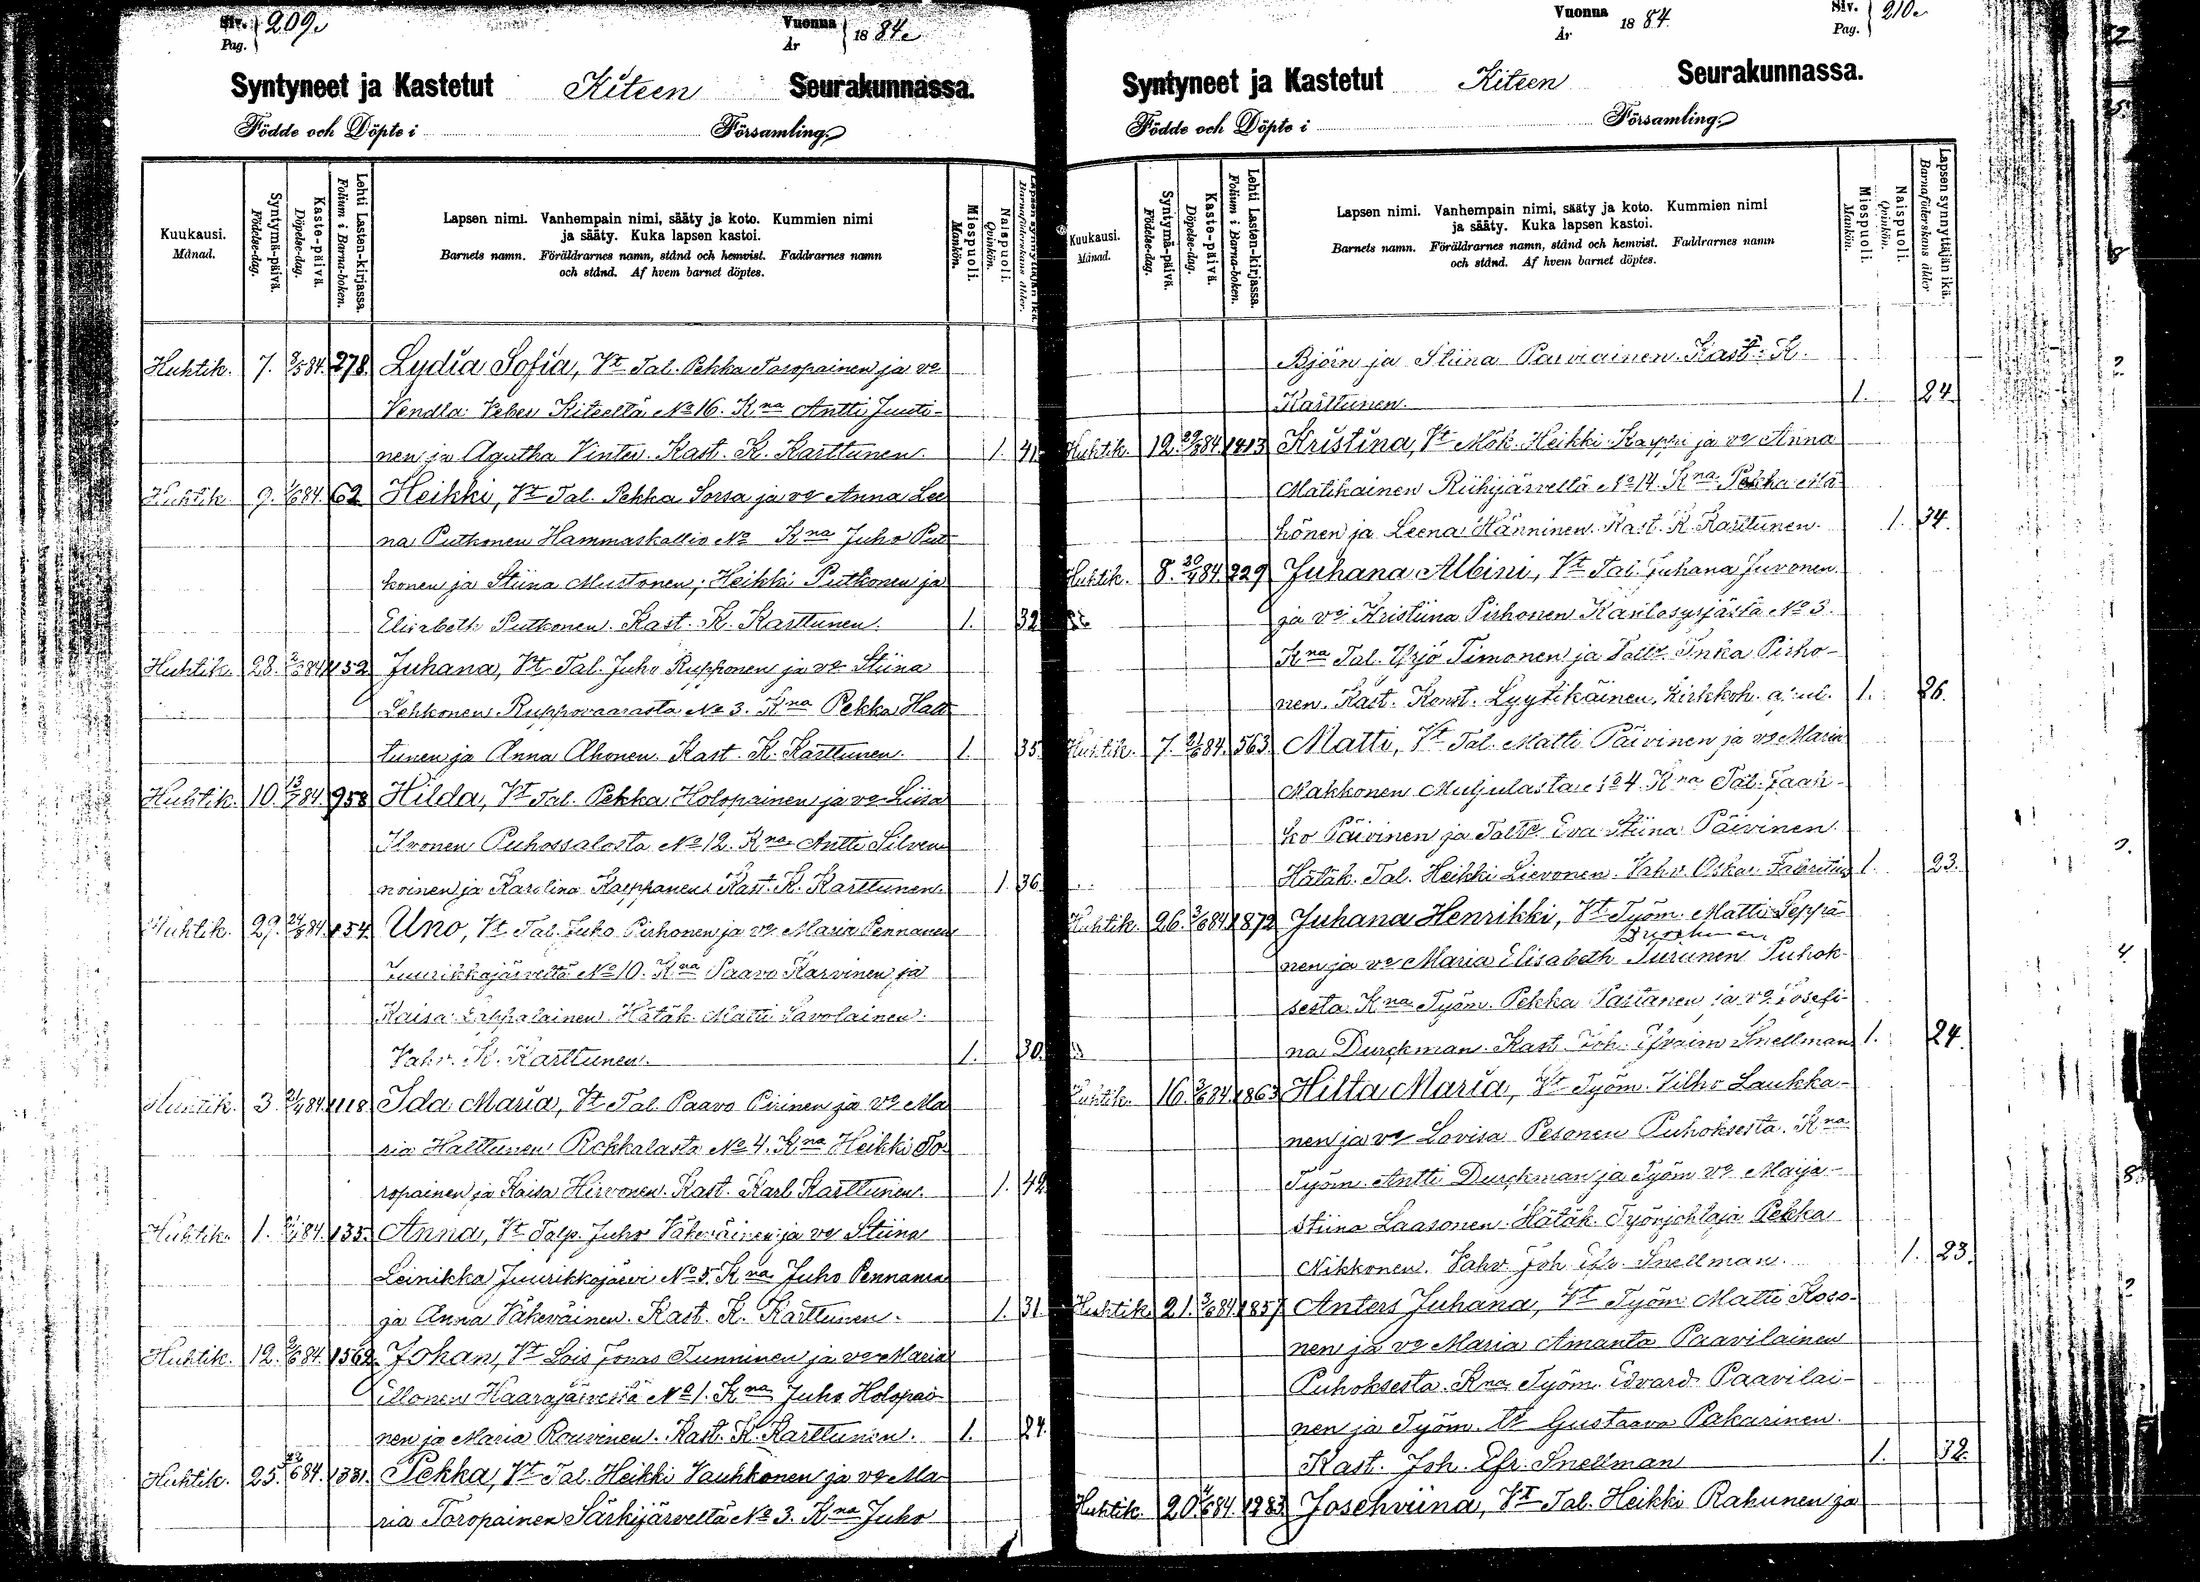 Siv. Pag. 209.
Vuonna År 1884.
Syntyneet ja Kastetut Kiteen Seurakunnassa.
Födde och Döpte i Församling.
Kuukausi. Månad.
Syntymä-päivä. Födelse-dag.
Kaste-päivä. Döpelse-dag.
Lehti Lasten-kirjassa. Folium i Barna-boken.
Lapsen nimi. Vanhempain nimi, sääty ja koto. Kummien nimi
ja sääty. Kuka lapsen kastoi.
Barnets namn. Föräldrarnes namn, stånd och hemvist. Faddrarnes namn
och stånd. Af hvem barnet döptes.
Miespuoli. Mankön.
Naispuoli. Qvinkön.
Huhtik. 7. 84. 278. Lydia Sofia, Vt Tal. Pekka Taropainen ja vo
Vendla Veber Kiteeltä No 16. Kna Antti Juuti-
nen ja Agatha Vinter. Kast. K. Karttunen. 1. 41.
Huhtik. 9. 84. 62 Heikki, Vt Tal. Pekka Sorsa ja vo Anna Lee
na Puthonen Hammaskallio No Kna Juho Put
konen ja Stiina Mustonen, Heikki Putkonen ja
Elisabeth Putkonen. Kast. K. Karttunen. 1. 32
Huhtik. 28. 84. 1152 Juhana, Vt Tal. Juho Rupponen ja vo Stiina
Lehkonen Ruppovaarasta No 3. Kna Pekka Halt
tunen ja Anna Ahonen. Kast. K. Karttunen. 1. 35.
Huhtik. 10. 84. 958 Hilda, Vt Tal. Pekka Holopainen ja vo Liisa
Ilvonen Puhossalosta No 12. Kna Antti Silven
noinen ja Karolina Kasppanen Kast. K. Karttunen. 1 36.
Huhtik. 29. 84. 154. Uno, Vt Tal. Juho Pirhonen ja vo Maria Pennanen
Juurikkajärveltä No 10. Kna Paavo Karvinen ja
Kaisa Lappalainen. Hätäk. Matti Savolainen.
Vahv. K. Karttunen. 1. 30.
Huhtik. 3. 84. 1118 Ida Maria, Vt Tal. Paavo Pirinen ja vo Ma
ria Halttunen Rokkalasta No 4. Kna Heikki To
ropainen ja Kaisa Hirvonen. Kast. Karl Karttunen. 1. 42
Huhtik. 1. 84. 135. Anna, Vt Talp. Juho Väkeväinen ja vo Stiina
Leinikka Juurikkajärvi No 5. Kna Juho Pennanen
ja Anna Väkeväinen. Kast. K. Karttunen. 1. 31.
Huhtik. 12. 84. 1562. Johan, Vt Lois Jonas Tunninen ja vo Maria
Ellonen Haarajärveltä No 1. Kna Juho Holopai-
nen ja Maria Rouvinen. Kast. K. Karttunen. 1. 24.
Huhtik. 25. 84. 1331. Pekka, Vt Tal. Heikki Vauhkonen ja vo Ma-
ria Toropainen Särkijärveltä No 3. Kna Juho
Vuonna År 1884.
Siv. Pag. 210.
Syntyneet ja Kastetut Kiteen Seurakunnassa.
Födde och Döpte i Församling.
Kuukausi. Månad.
Syntymä-päivä. Födelse-dag.
Kaste-päivä. Döpelse-dag.
Lehti Lasten-kirjassa. Folium i Barna-boken.
Lapsen nimi. Vanhempain nimi, sääty ja koto. Kummien nimi
ja sääty. Kuka lapsen kastoi.
Barnets namn. Föräldrarnes namn, stånd och hemvist. Faddrarnes namn
och stånd. Af hvem barnet döptes.
Miespuoli. Mankön.
Naispuoli. Qvinkön.
Lapsen synnyttäjän ikä. Barnaföderskans ålder
Björn ja Stiina Parviainen. Kast. K.
Karttunen. 1. 24.
Huhtik. 12. 84. 1413 Kristina, Vt Mök. Heikki Kappi ja vo Anna
Matikainen Riihijärveltä No 14. Kna Pekka Mä
hönen ja Leena Hänninen. Kast. K. Karttunen. 1. 34.
Huhtik. 8. 84. 229 Juhana Albini, Vt Tal. Juhana Juvonen
ja vo Kristiina Pirhonen No 3.
Kna Tal. Yrjö Timonen ja Inka Pirho-
nen. Kast. Konst. Lyytikäinen, Kirkkoh. 1. 26.
Huhtik. 7. 84. 563. Matti, Vt Tal. Matti Päivinen ja vo Maria
Nakkonen Muljulasta No 4. Kna Tal. Jaak-
ko Päivinen ja Eva Stiina Päivinen.
Hätäk. Tal. Heikki Lievonen. Vahv. Oskar Fabritius 1. 23.
Huhtik. 26. 84. 1872 Juhana Henrikki, Vt Työm. Matti Seppä
Durchman
nen ja vo Maria Elisabeth Turunen Puhok-
sesta. Kna Työm. Pekka Partanen ja vo Josefi-
na Durckman. Kast. Joh. Efraim Snellman 1. 24.
Huhtik. 16. 84. 1863 Hilta Maria, Vt Työm. Vilho Laukka-
nen ja vo Lovisa Pesonen Puhoksesta. Kna
Työm. Antti Durckman ja Työm vo Maija-
Stiina Laasonen. Hätäk. Työnjohtaja Pekka
Nikkonen. Vahv. Joh Efr. Snellman. 1. 23.
Huhtik 21. 84. 1857 Anters Juhana, Vt Työm Matti Koso-
nen ja vo Maria Amanta Paavilainen
Puhoksesta. Kna Työm. Edvard Paavilai-
nen ja Työm. Vo Gustaava Pakarinen.
Kast. Joh. Efr. Snellman 1. 32.
Huhtik. 20. 84. 1283. Josehviina, Vt Tal. Heikki Rahunen ja